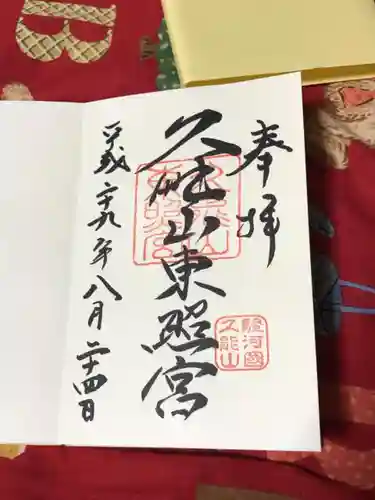 奉拝
久能山東照宮
駿河國
久能山
平成二十九年八月二十四日
B